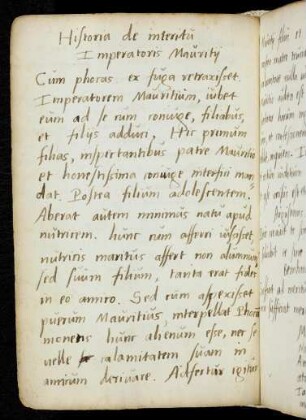 Historia de interitu
Imperatoris Mauritij
Cum phocas ex fuga retraxisset
Imperatorem Mauritium, iubet
eum ad se cum coniuge, filiabus,
et filijs adduci, Hic primum
filias, inspectantibus patre Mauritio
et honestissima coniuge interfici man
dat. Postea filium adolescentem.
Aberat autem minimus natu apud
nutricem. hunc cum afferri iussisset
nutricis maritus affert non alumnum
sed suum filium, tanta erat fides
in eo amico. Sed cum aspexisset
puerum Mauritius interpellat Phocam
monens hunc alienum esse, nec se
velle calamitatem suam in
amicum derivare. Adfertur igitur